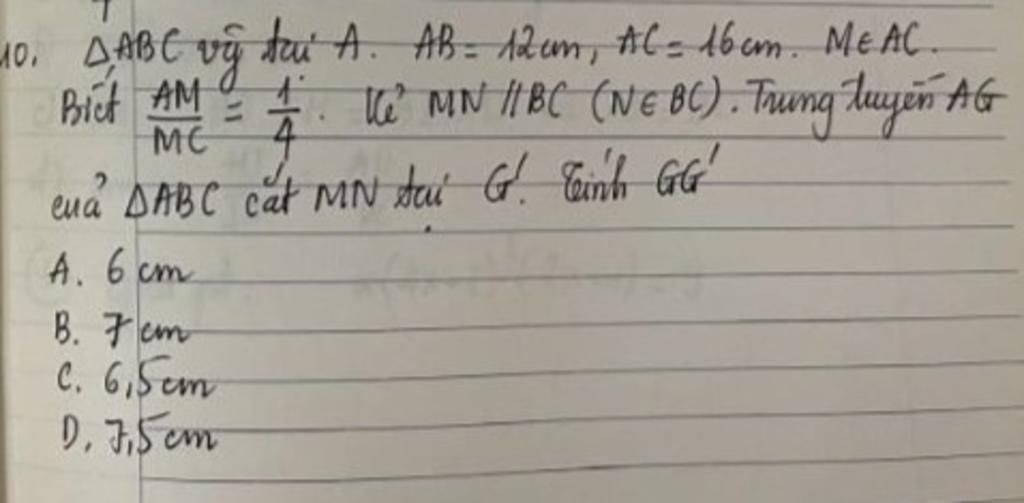 10. ΔABC vg tại A. AB = 12cm, AC = 16cm. M∈AC.
Biết AM/MC = 1/4. Kẻ MN // BC (N∈BC). Trung tuyến AG
của ΔABC cắt MN tại G'. Tính GG'
A. 6 cm
B. 7 cm
C. 6,5 cm
D. 7,5 cm